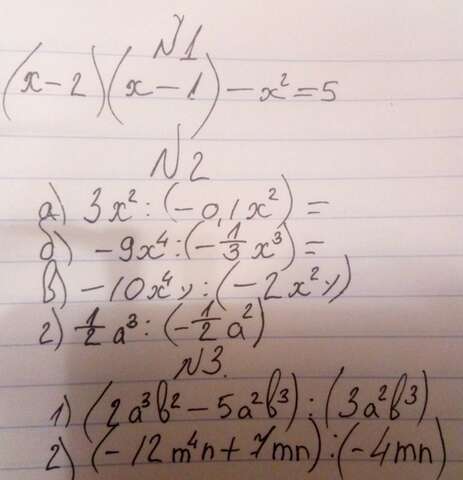 №1
(x-2)(x-1)-x²=5
№2
а) 3x²:(-0,1x²)=
б) -9x⁴:(-1/3 x³)=
в) -10x⁴y:(-2x²y)
г) 1/2 a³:(-1/2 a²)
№3.
1) (2a³b²-5a²b³):(3a²b³)
2) (-12m⁴n+7mn):(-4mn)